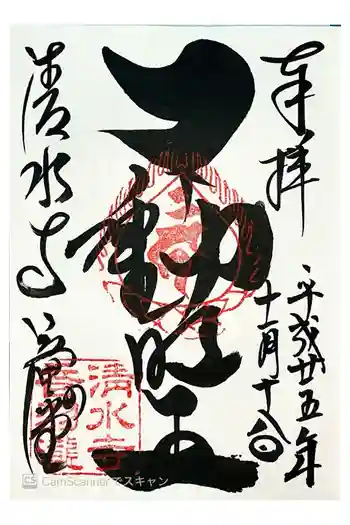 奉拝
平成廿五年
十一月十八日
不動明王
清水寺
清水寺
CS CamScannerでスキャン